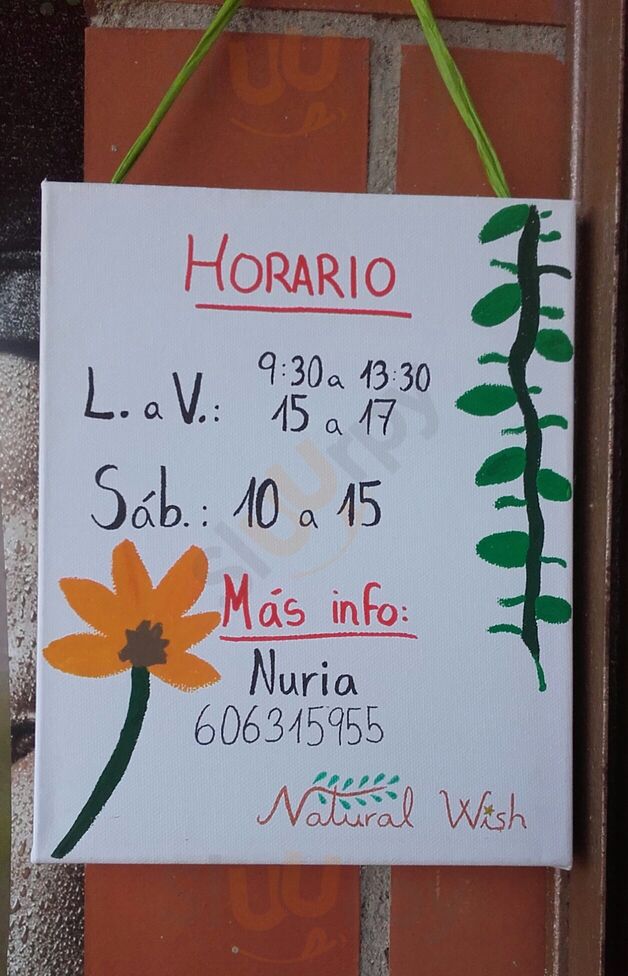 HORARIO
L. a V.: 9:30 a 13:30
15 a 17
Sáb.: 10 a 15
Más info:
Nuria
606315955
Natural Wish
sluurpy